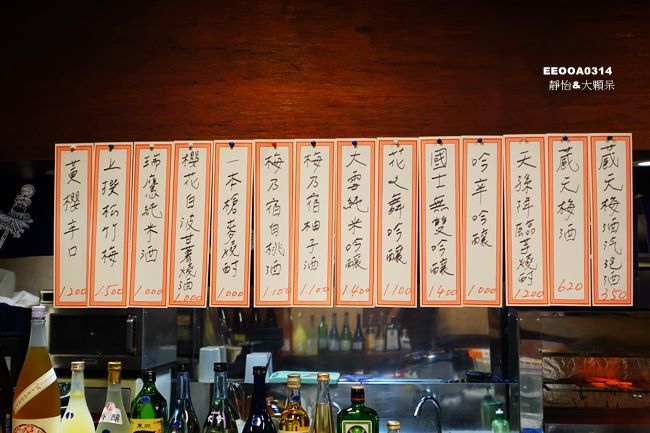 EEOOA0314
靜怡&大顆呆
黃櫻辛口
1.200
上撰松竹梅
1.500
瑞鷹純米酒
1.000
櫻花白波甘薯燒酒
1.000
一本槍麥燒酎
1.000
梅乃宿白桃酒
1.100
梅乃宿柚子酒
1.100
大雪純米吟釀
1.400
花之舞吟釀
1.100
國士無雙吟釀
1400
吟辛吟釀
1.000
天孫降臨芋燒酎
1200
蔵元梅酒
620
蔵元梅酒汽泡酒
350